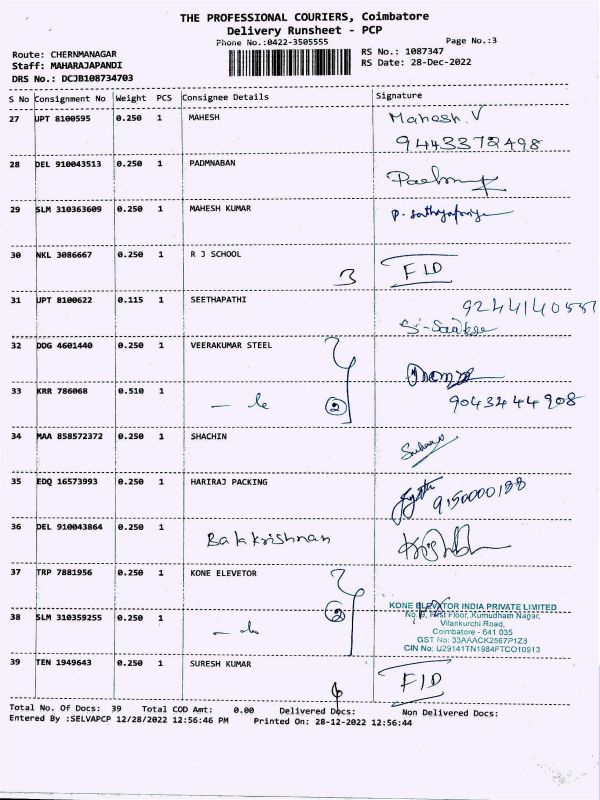 THE PROFESSIONAL COURIERS, Coimbatore
Delivery Runsheet - PCP
Phone No.:0422-3505555
Page No.:3
Route: CHERNMANAGAR
RS No.: 1087347
Staff: MAHARAJAPANDI
RS Date: 28-Dec-2022
DRS No.: DCJB108734703
S No Consignment No Weight PCS Consignee Details Signature
27 UPT 8100595 0.250 1 MAHESH Mahesh. V
9443372498
28 DEL 910043513 0.250 1 PADMNABAN
29 SLM 310363609 0.250 1 MAHESH KUMAR P. Sathyapriya
30 NKL 3086667 0.250 1 R J SCHOOL
3 F I D
31 UPT 8100622 0.115 1 SEETHAPATHI
32 DDG 4601440 0.250 1 VEERAKUMAR STEEL
33 KRR 786068 0.510 1
2 9043244908
34 MAA 858572372 0.250 1 SHACHIN
35 EDQ 16573993 0.250 1 HARIRAJ PACKING
9150000188
36 DEL 910043864 0.250 1
Balakrishnan
37 TRP 7881956 0.250 1 KONE ELEVETOR
KONE ELEVATOR INDIA PRIVATE LIMITED
38 SLM 310359255 0.250 1 2
First Floor, Kumudham Nagar,
Vilankurchi Road,
Coimbatore - 641 035
GST No: 33AAACK2567P1Z8
CIN No: U29141TN1984FTCO10913
39 TEN 1949643 0.250 1 SURESH KUMAR F I D
Total No. Of Docs: 39 Total COD Amt: 0.00 Delivered Docs: Non Delivered Docs:
Entered By :SELVAPCP 12/28/2022 12:56:46 PM Printed On: 28-12-2022 12:56:44